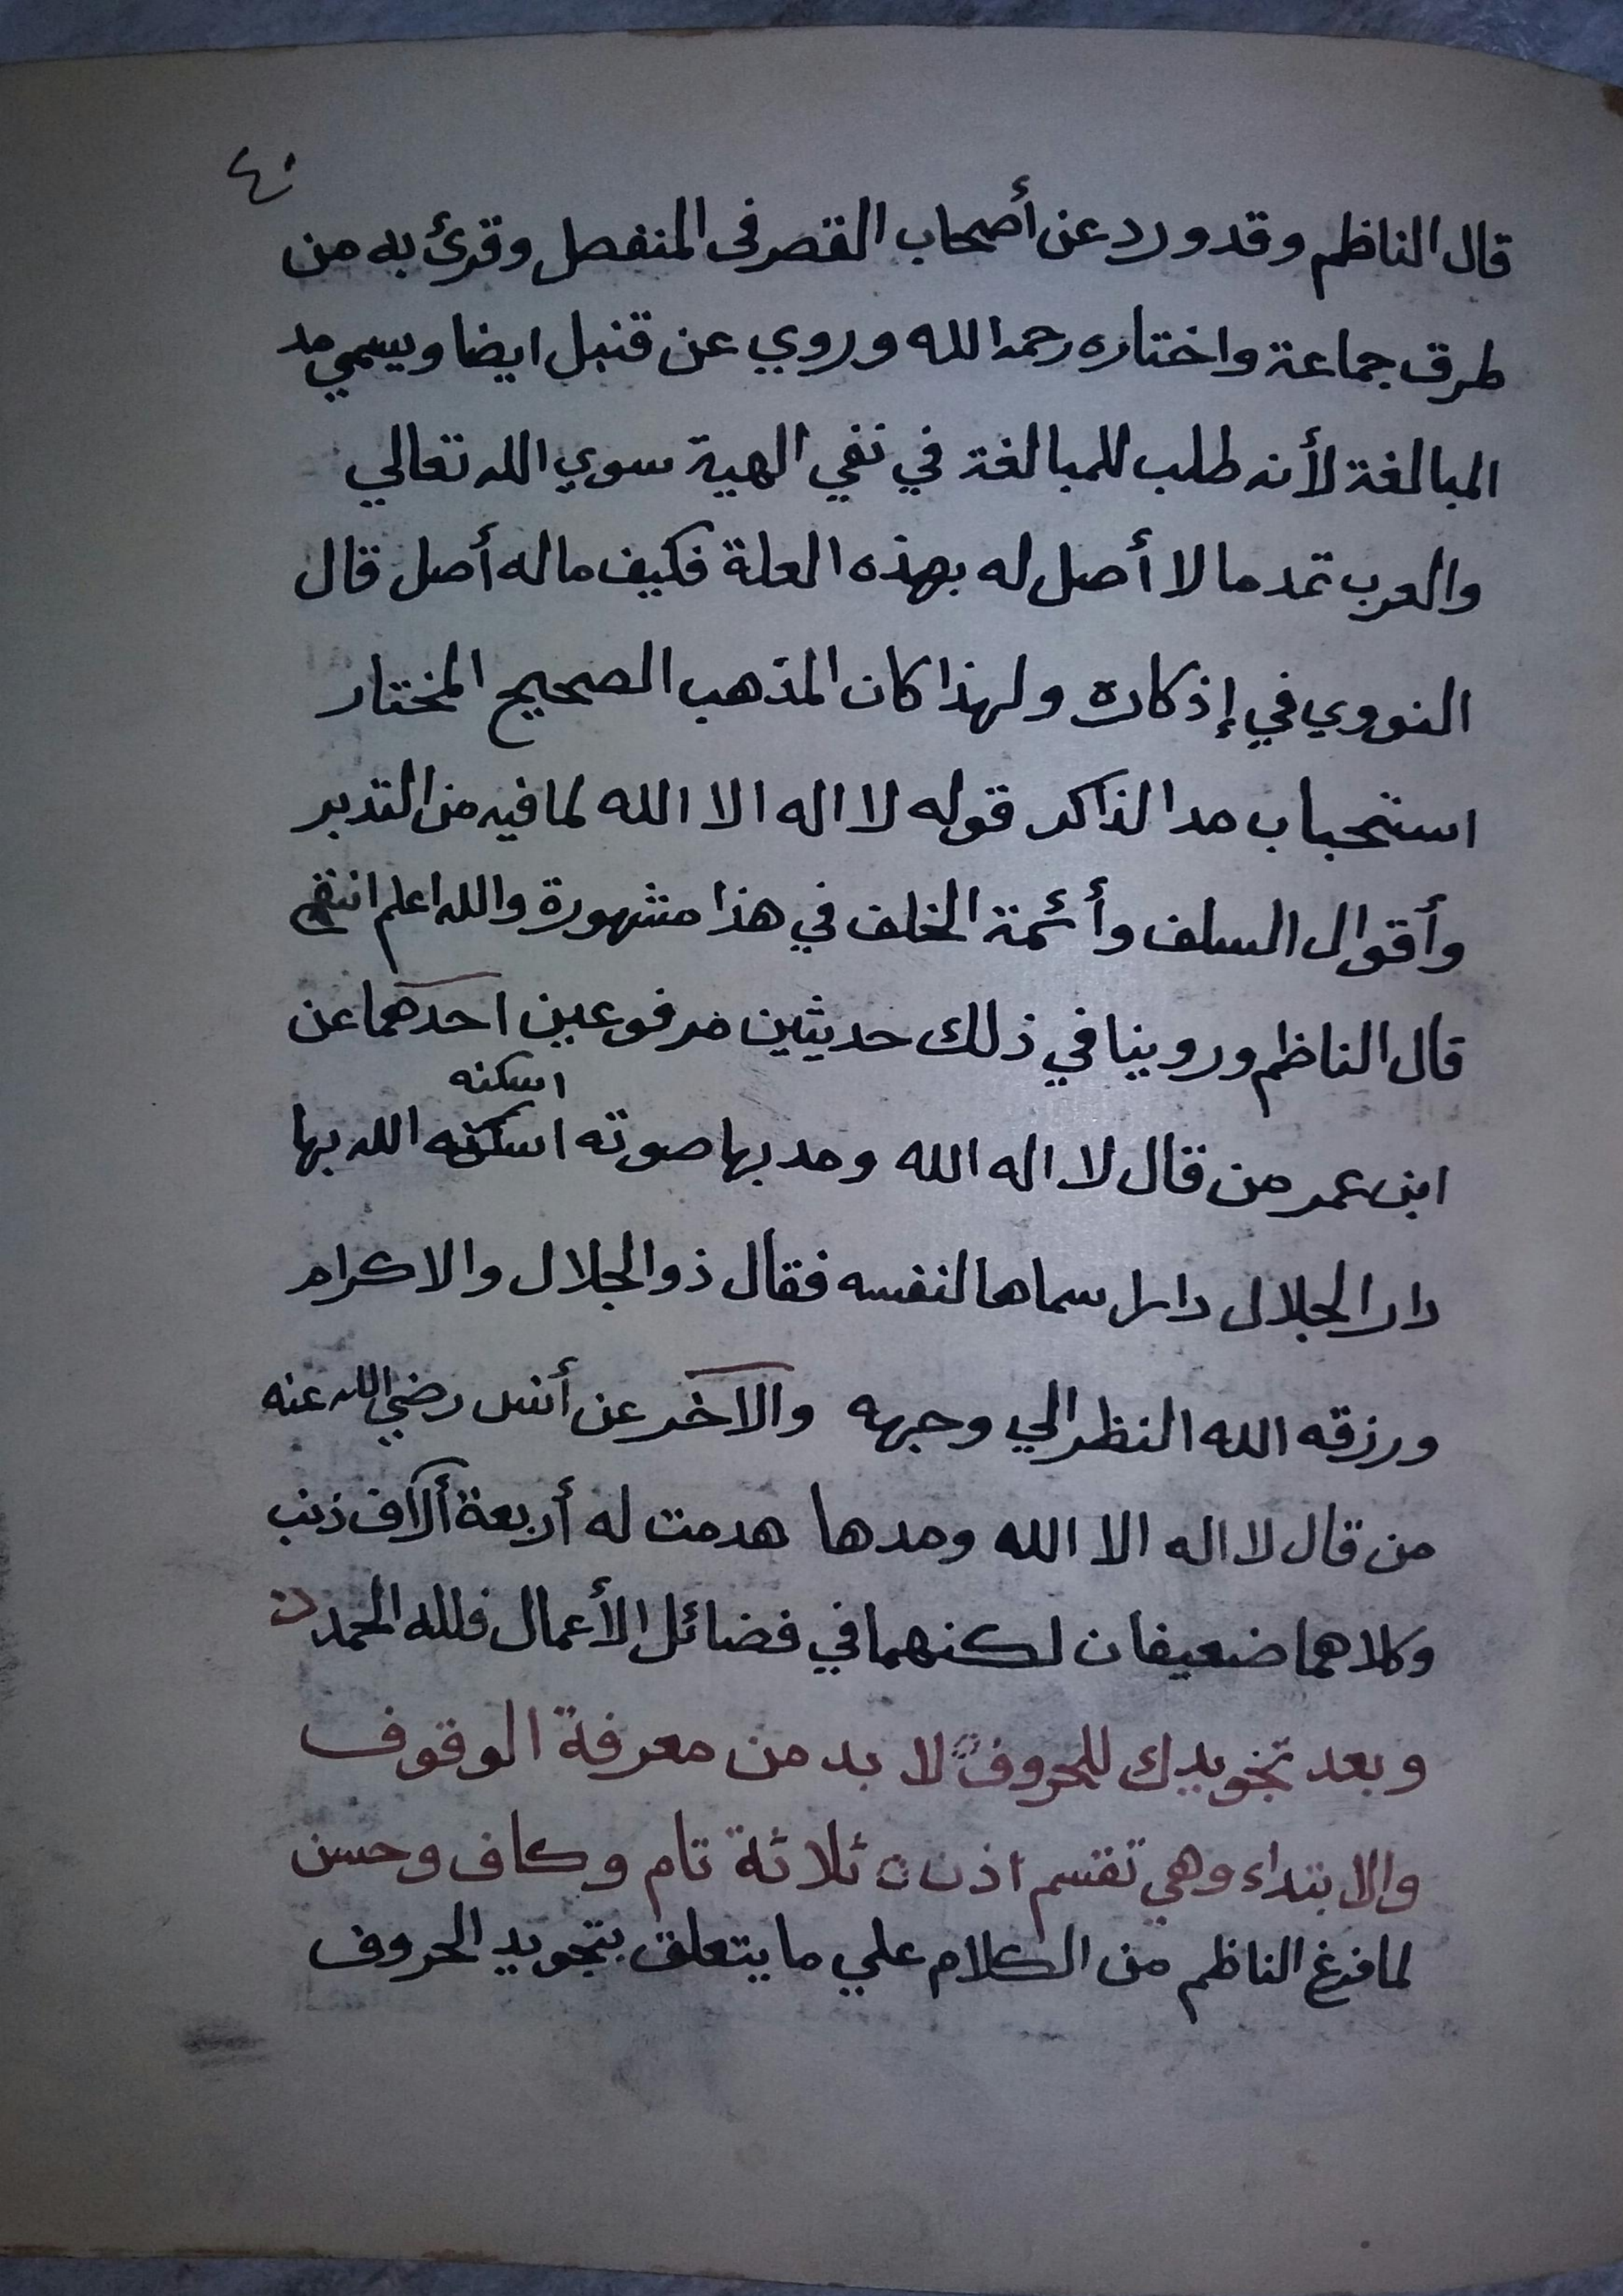 ٤٠
قال الناظم وقد ورد عن أصحاب القصر فى المنفصل وقرئ به من
طرق جماعة واختاره رحمه الله وروي عن قنبل ايضا ويسمي مد
المبالغة لأنه طلب للمبالغة في نفي الهية سوي الله تعالي
والعرب تمد ما لا أصل له بهذه العلة فكيف ماله أصل قال
النووي في إذكاره ولهذا كان المذهب الصحيح المختار
استحباب مد الذاكر قوله لا اله الا الله لما فيه من التدبر
وأقوال السلف وأئمة الخلف في هذا مشهورة والله اعلم انتهي
قال الناظم وروينا في ذلك حديثين مرفوعين احدهما عن
اسكنه
ابن عمر من قال لا اله الله ومد بها صوته اسكنه الله بها
دار الجلال دارا سماها لنفسه فقال ذو الجلال والاكرام
ورزقه الله النظر الي وجهه والآخر عن أنس رضي الله عنه
من قال لا اله الا الله ومدها هدمت له أربعة ألآف ذنب
وكلاهما ضعيفان لكنهما في فضائل الأعمال فلله الحمد
وبعد تجويدك للحروف لا بد من معرفة الوقوف
والابتداء وهي تقسم اذن ثلاثة تام وكاف وحسن
لما فرغ الناظم من الكلام علي ما يتعلق بتجويد الحروف